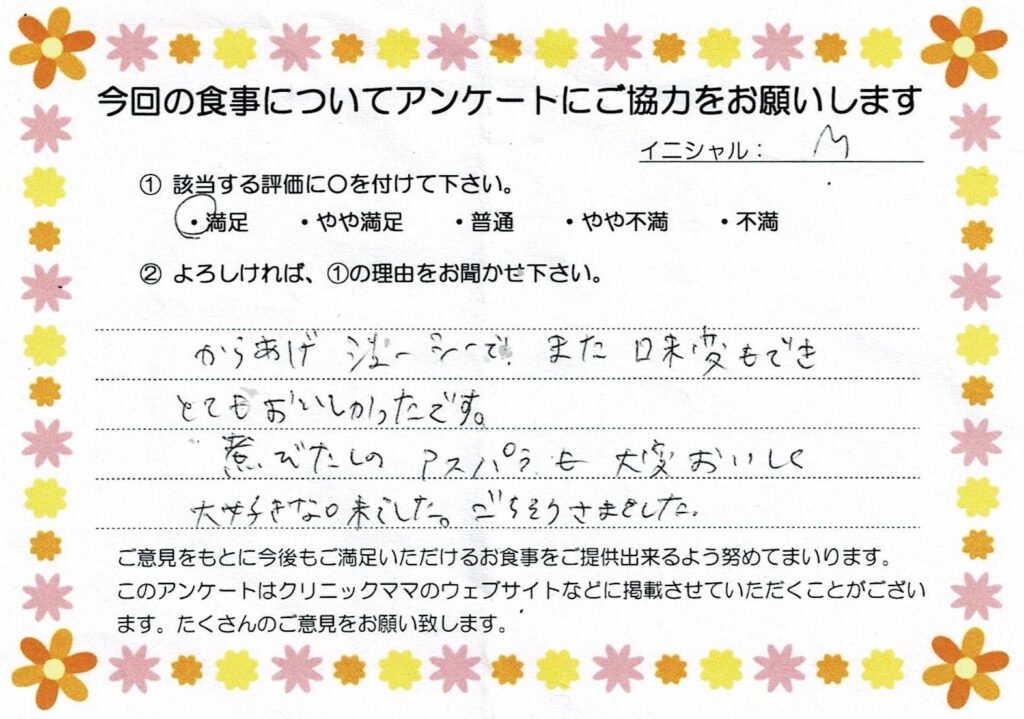 今回の食事についてアンケートにご協力をお願いします
イニシャル： M
① 該当する評価に〇を付けて下さい。
・満足 ・やや満足 ・普通 ・やや不満 ・不満
② よろしければ、①の理由をお聞かせ下さい。
からあげ ジューシーで、また 味変もでき
とてもおいしかったです。
煮びたしの アスパラも 大変おいしく
大好きな味でした。ごちそうさまでした。
ご意見をもとに今後もご満足いただけるお食事をご提供出来るよう努めてまいります。
このアンケートはクリニックママのウェブサイトなどに掲載させていただくことがござい
ます。たくさんのご意見をお願い致します。